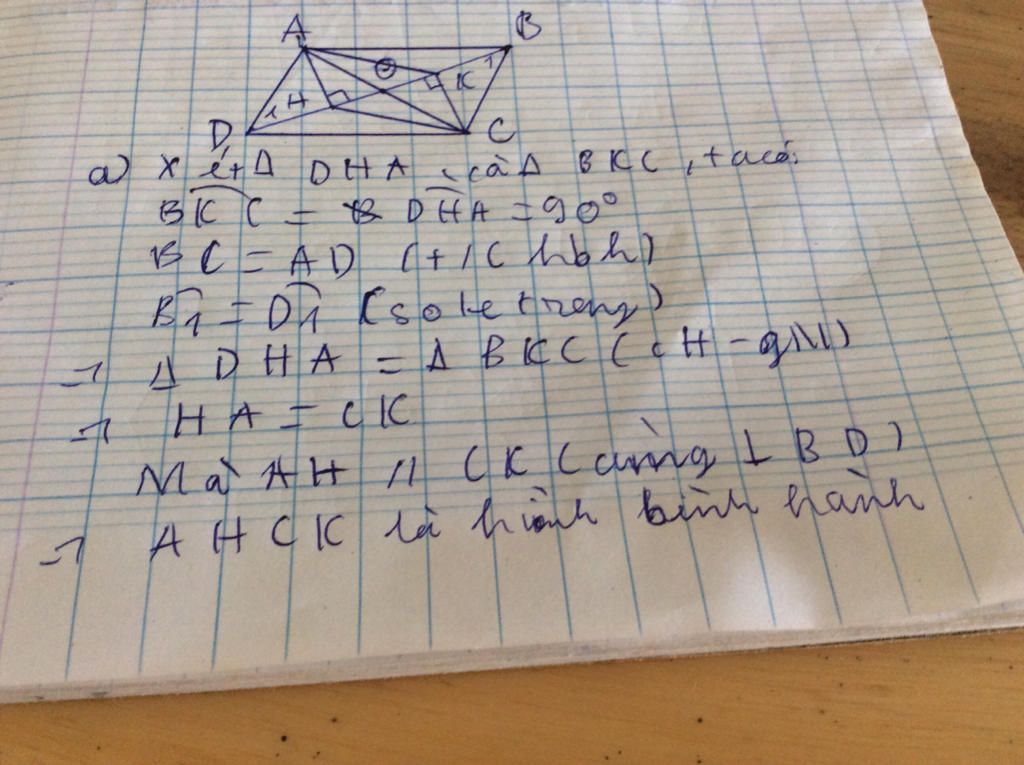 A B
O
1 H K 1
D C
a) Xét Δ DHA và Δ BKC, ta có:
BKC = DHA = 90°
BC = AD (t/c hbh)
B1 = D1 (so le trong)
=> Δ DHA = Δ BKC (cH - gN)
=> HA = CK
Mà AH // CK (cùng ⊥ BD)
=> AHCK là hình bình hành